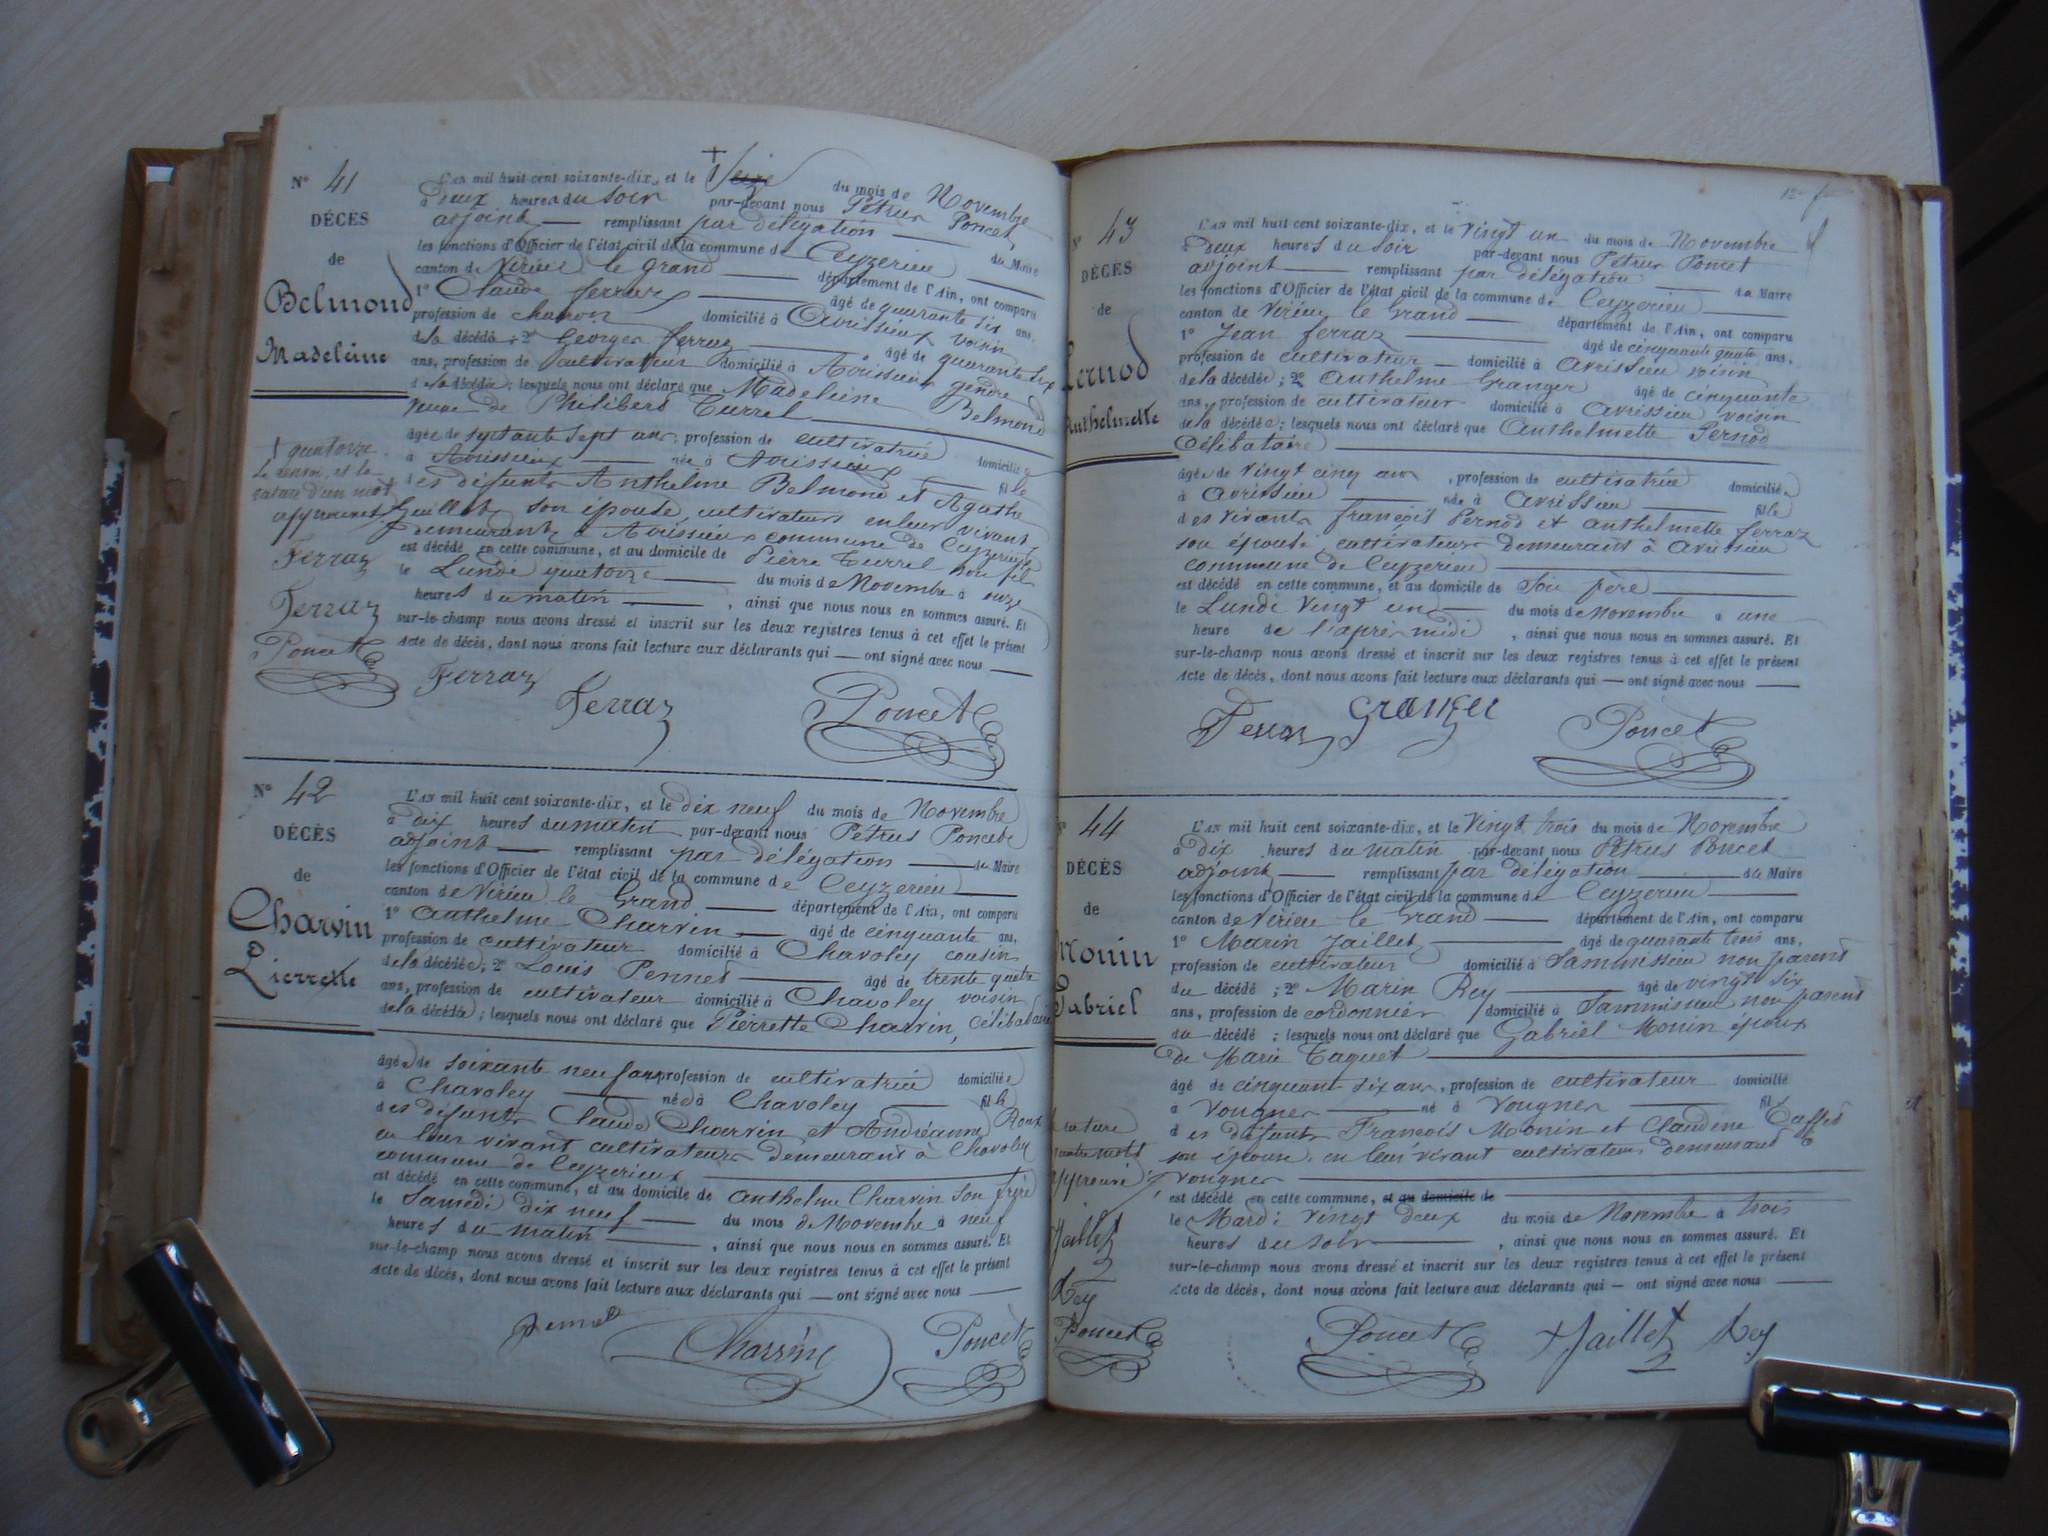 N° 41
DÉCÈS
de
Belmond
Madeleine
† quatorze
le renvoi et la
rature d'un mot
approuvés
Ferraz
Ferraz
Poncet
L'AN mil huit cent soixante-dix, et le † Seize du mois de Novembre
à deux heures du soir par-devant nous Pétrus Poncet
adjoint remplissant par délégation du Maire
les fonctions d'Officier de l'état civil de la commune de Ceyzerieu
canton de Virieu le Grand département de l'Ain, ont comparu
1° Claude Ferraz âgé de quarante six ans,
profession de charron domicilié à Avrissieux voisin
de la décédée ; 2° Georges Ferraz âgé de quarante six
ans, profession de cultivateur domicilié à Avrissieux gendre
de la décédée ; lesquels nous ont déclaré que Madeleine Belmond
veuve de Philibert Turrel
âgée de septante sept ans, profession de cultivatrice domiciliée
à Avrissieux née à Avrissieux fille
des defunts Anthelme Belmond et Agathe
Guillot, son épouse, cultivateurs en leur vivant
demeurant à Avrissieux commune de Ceyzerieu
est décédé en cette commune, et au domicile de Pierre Turrel son fils
le Lundi quatorze du mois de Novembre à onze
heures du matin, ainsi que nous nous en sommes assuré. Et
sur-le-champ nous avons dressé et inscrit sur les deux registres tenus à cet effet le présent
Acte de décès, dont nous avons fait lecture aux déclarants qui ont signé avec nous
Ferraz Ferraz Poncet
N° 42
DÉCÈS
de
Charvin
Pierrette
L'AN mil huit cent soixante-dix, et le dix neuf du mois de Novembre
à dix heures du matin par-devant nous Pétrus Poncet
adjoint remplissant par délégation du Maire
les fonctions d'Officier de l'état civil de la commune de Ceyzerieu
canton de Virieu le Grand département de l'Ain, ont comparu
1° Anthelme Charvin âgé de cinquante ans,
profession de cultivateur domicilié à Chavoley cousin
de la décédée ; 2° Louis Pennet âgé de trente quatre
ans, profession de cultivateur domicilié à Chavoley voisin
de la décédée ; lesquels nous ont déclaré que Pierrette Charvin, célibataire
âgée de soixante neuf ans profession de cultivatrice domiciliée
à Chavoley née à Chavoley fille
des défunts Claude Charvin et Andréanne Roux
en leur vivant cultivateurs demeurant à Chavoley
commune de Ceyzerieux
est décédé en cette commune, et au domicile de Anthelme Charvin son frère
le Samedi dix neuf du mois de Novembre à neuf
heures du matin, ainsi que nous nous en sommes assuré. Et
sur-le-champ nous avons dressé et inscrit sur les deux registres tenus à cet effet le présent
Acte de décès, dont nous avons fait lecture aux déclarants qui ont signé avec nous
Pennet Charvin Poncet
N° 43
DÉCÈS
de
Pernod
Anthelmette
L'AN mil huit cent soixante-dix, et le vingt un du mois de Novembre
à deux heures du soir par-devant nous Pétrus Poncet
adjoint remplissant par délégation du Maire
les fonctions d'Officier de l'état civil de la commune de Ceyzerieu
canton de Virieu le Grand département de l'Ain, ont comparu
1° Jean Ferraz âgé de cinquante quatre ans,
profession de cultivateur domicilié à Avrissieu voisin
de la décédée ; 2° Anthelme Granger âgé de cinquante
ans, profession de cultivateur domicilié à Avrissieu voisin
de la décédée ; lesquels nous ont déclaré que Anthelmette Pernod
Célibataire
âgée de vingt cinq ans, profession de cultivatrice domiciliée
à Avrissieu née à Avrissieu fille
des vivants François Pernod et Anthelmette Ferraz
son épouse, cultivateurs demeurants à Avrissieu
commune de Ceyzerieu
est décédé en cette commune, et au domicile de son père
le Lundi vingt un du mois de Novembre à une
heure de l'après midi, ainsi que nous nous en sommes assuré. Et
sur-le-champ nous avons dressé et inscrit sur les deux registres tenus à cet effet le présent
Acte de décès, dont nous avons fait lecture aux déclarants qui ont signé avec nous
Ferraz Granger Poncet
N° 44
DÉCÈS
de
Monin
Gabriel
rature
quatre mots
approuvée
Jaillet
Rey
Poncet
L'AN mil huit cent soixante-dix, et le vingt trois du mois de Novembre
à dix heures du matin par-devant nous Pétrus Poncet
adjoint remplissant par délégation du Maire
les fonctions d'Officier de l'état civil de la commune de Ceyzerieu
canton de Virieu le Grand département de l'Ain, ont comparu
1° Marin Jaillet âgé de quarante trois ans,
profession de cultivateur domicilié à Sammissieu non parent
du décédé ; 2° Marin Rey âgé de vingt six
ans, profession de cordonnier domicilié à Sammisieu non parent
du décédé ; lesquels nous ont déclaré que Gabriel Monin époux
de Marie Taquet
âgé de cinquante six ans, profession de cultivateur domicilié
à Vougnes né à Vougnes fils
des défunts François Monin et Claudine
son épouse, en leur vivant cultivateurs demeurant à
Vougnes
est décédé en cette commune, et au domicile de
le Mardi vingt deux du mois de Novembre à trois
heures du soir, ainsi que nous nous en sommes assuré. Et
sur-le-champ nous avons dressé et inscrit sur les deux registres tenus à cet effet le présent
Acte de décès, dont nous avons fait lecture aux déclarants qui ont signé avec nous
Poncet Jaillet Rey